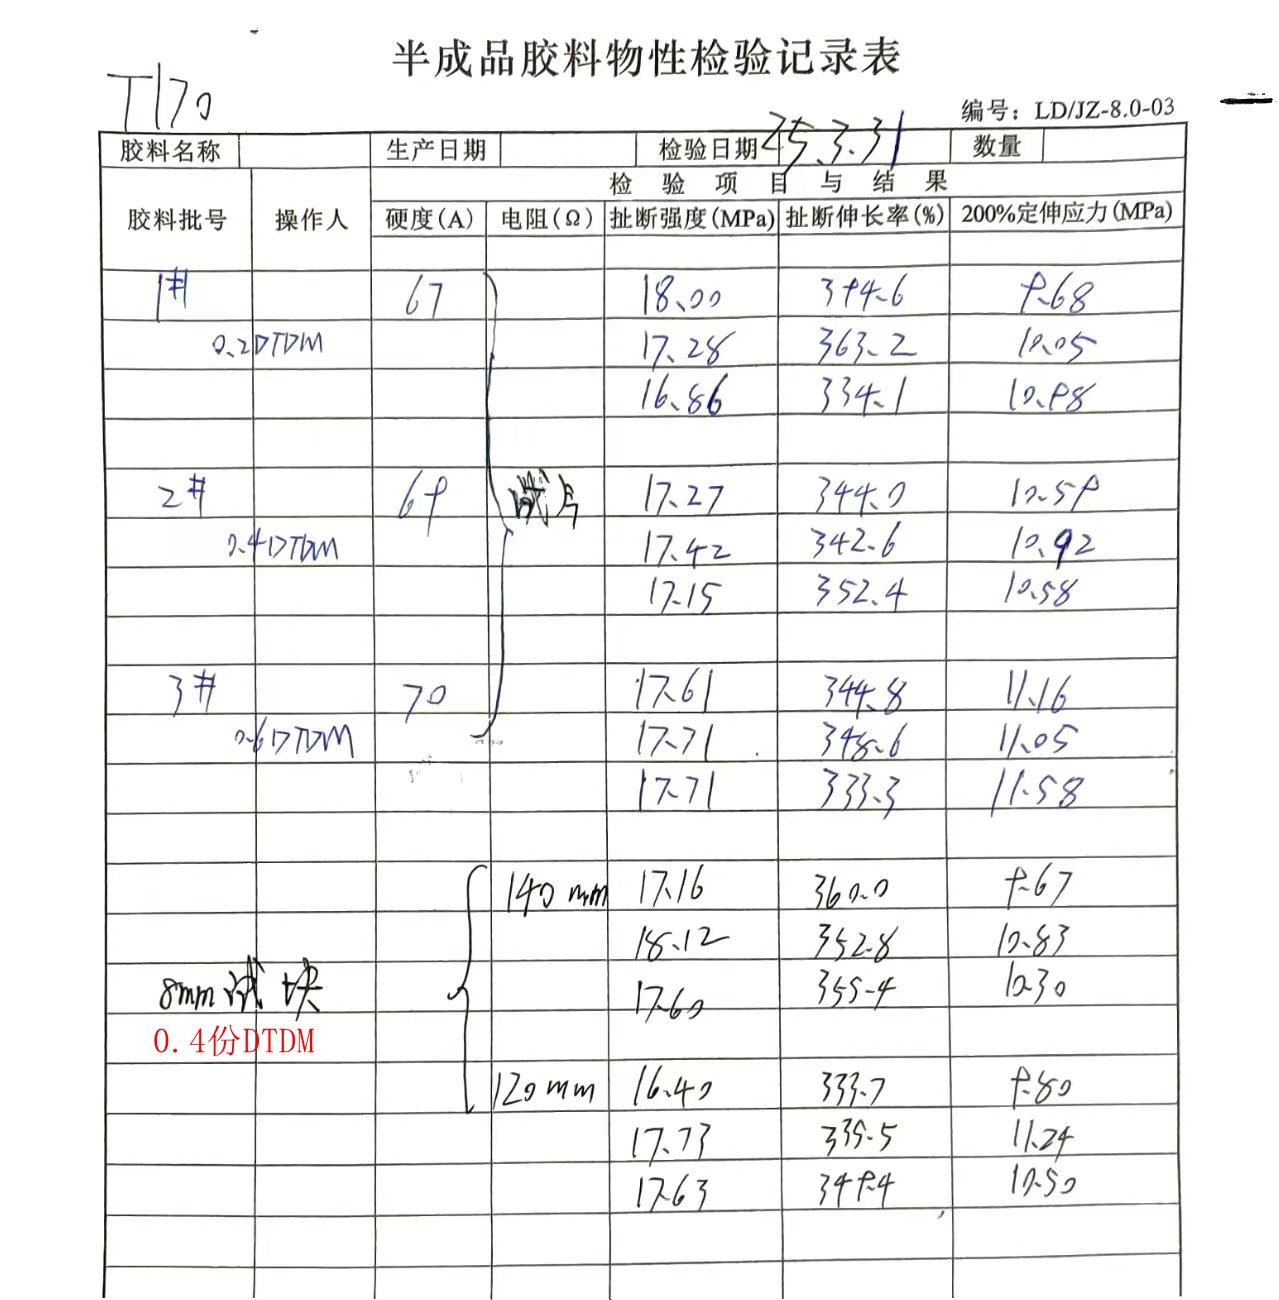 半成品胶料物性检验记录表
T170
编号：LD/JZ-8.0-03
胶料名称 生产日期 检验日期 25.3.31 数量
检验项目与结果
胶料批号 操作人 硬度(A) 电阻(Ω) 扯断强度(MPa) 扯断伸长率(%) 200%定伸应力(MPa)
1# 67 18.00 394.6 9.68
0.2DTDM 17.28 363.2 10.05
16.86 334.1 10.98
2# 69 试片 17.27 344.0 10.59
0.4DTDM 17.42 342.6 10.92
17.15 352.4 10.58
3# 70 17.61 344.8 11.16
0.6DTDM 17.71 348.6 11.05
17.71 333.3 11.58
140mm 17.16 360.0 9.67
18.12 352.8 10.83
8mm试块 17.60 355.4 10.30
0.4份DTDM
120mm 16.40 333.7 9.80
17.73 339.5 11.24
17.63 349.4 10.50